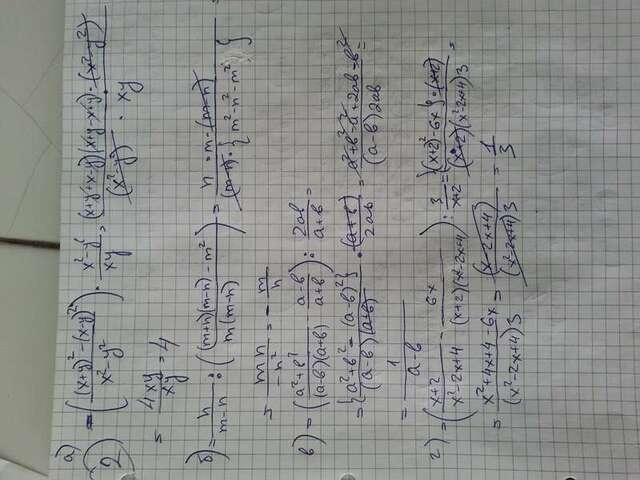 a)
2) = (((x+y)²-(x-y)²)/(x²-y²)) · (x²-y²)/(xy) = ((x+y+x-y)(x+y-x+y)·(x²-y²))/((x²-y²) · xy)
= 4xy/xy = 4
б) = n/(m-n) : (((m+n)(m-n)-m²)/(m(m-n))) = (n·m·(m-n))/((m-n)·{m²-n²-m²}) =
= mn/(-n²) = -m/n
в) = ((a²+b²)/((a-b)(a+b)) - (a-b)/(a+b)) : 2ab/(a+b) =
= ({a²+b²-(a-b)²}·(a+b))/((a-b)(a+b) 2ab) = (a²+b²-a²+2ab-b²)/((a-b)2ab) =
= 1/(a-b)
г) = ((x+2)/(x²-2x+4) - 6x/((x+2)(x²-2x+4))) : 3/(x+2) = ({(x+2)²-6x}·(x+2))/((x+2)(x²-2x+4)3) =
= (x²+4x+4-6x)/((x²-2x+4)3) = (x²-2x+4)/((x²-2x+4)3) = 1/3